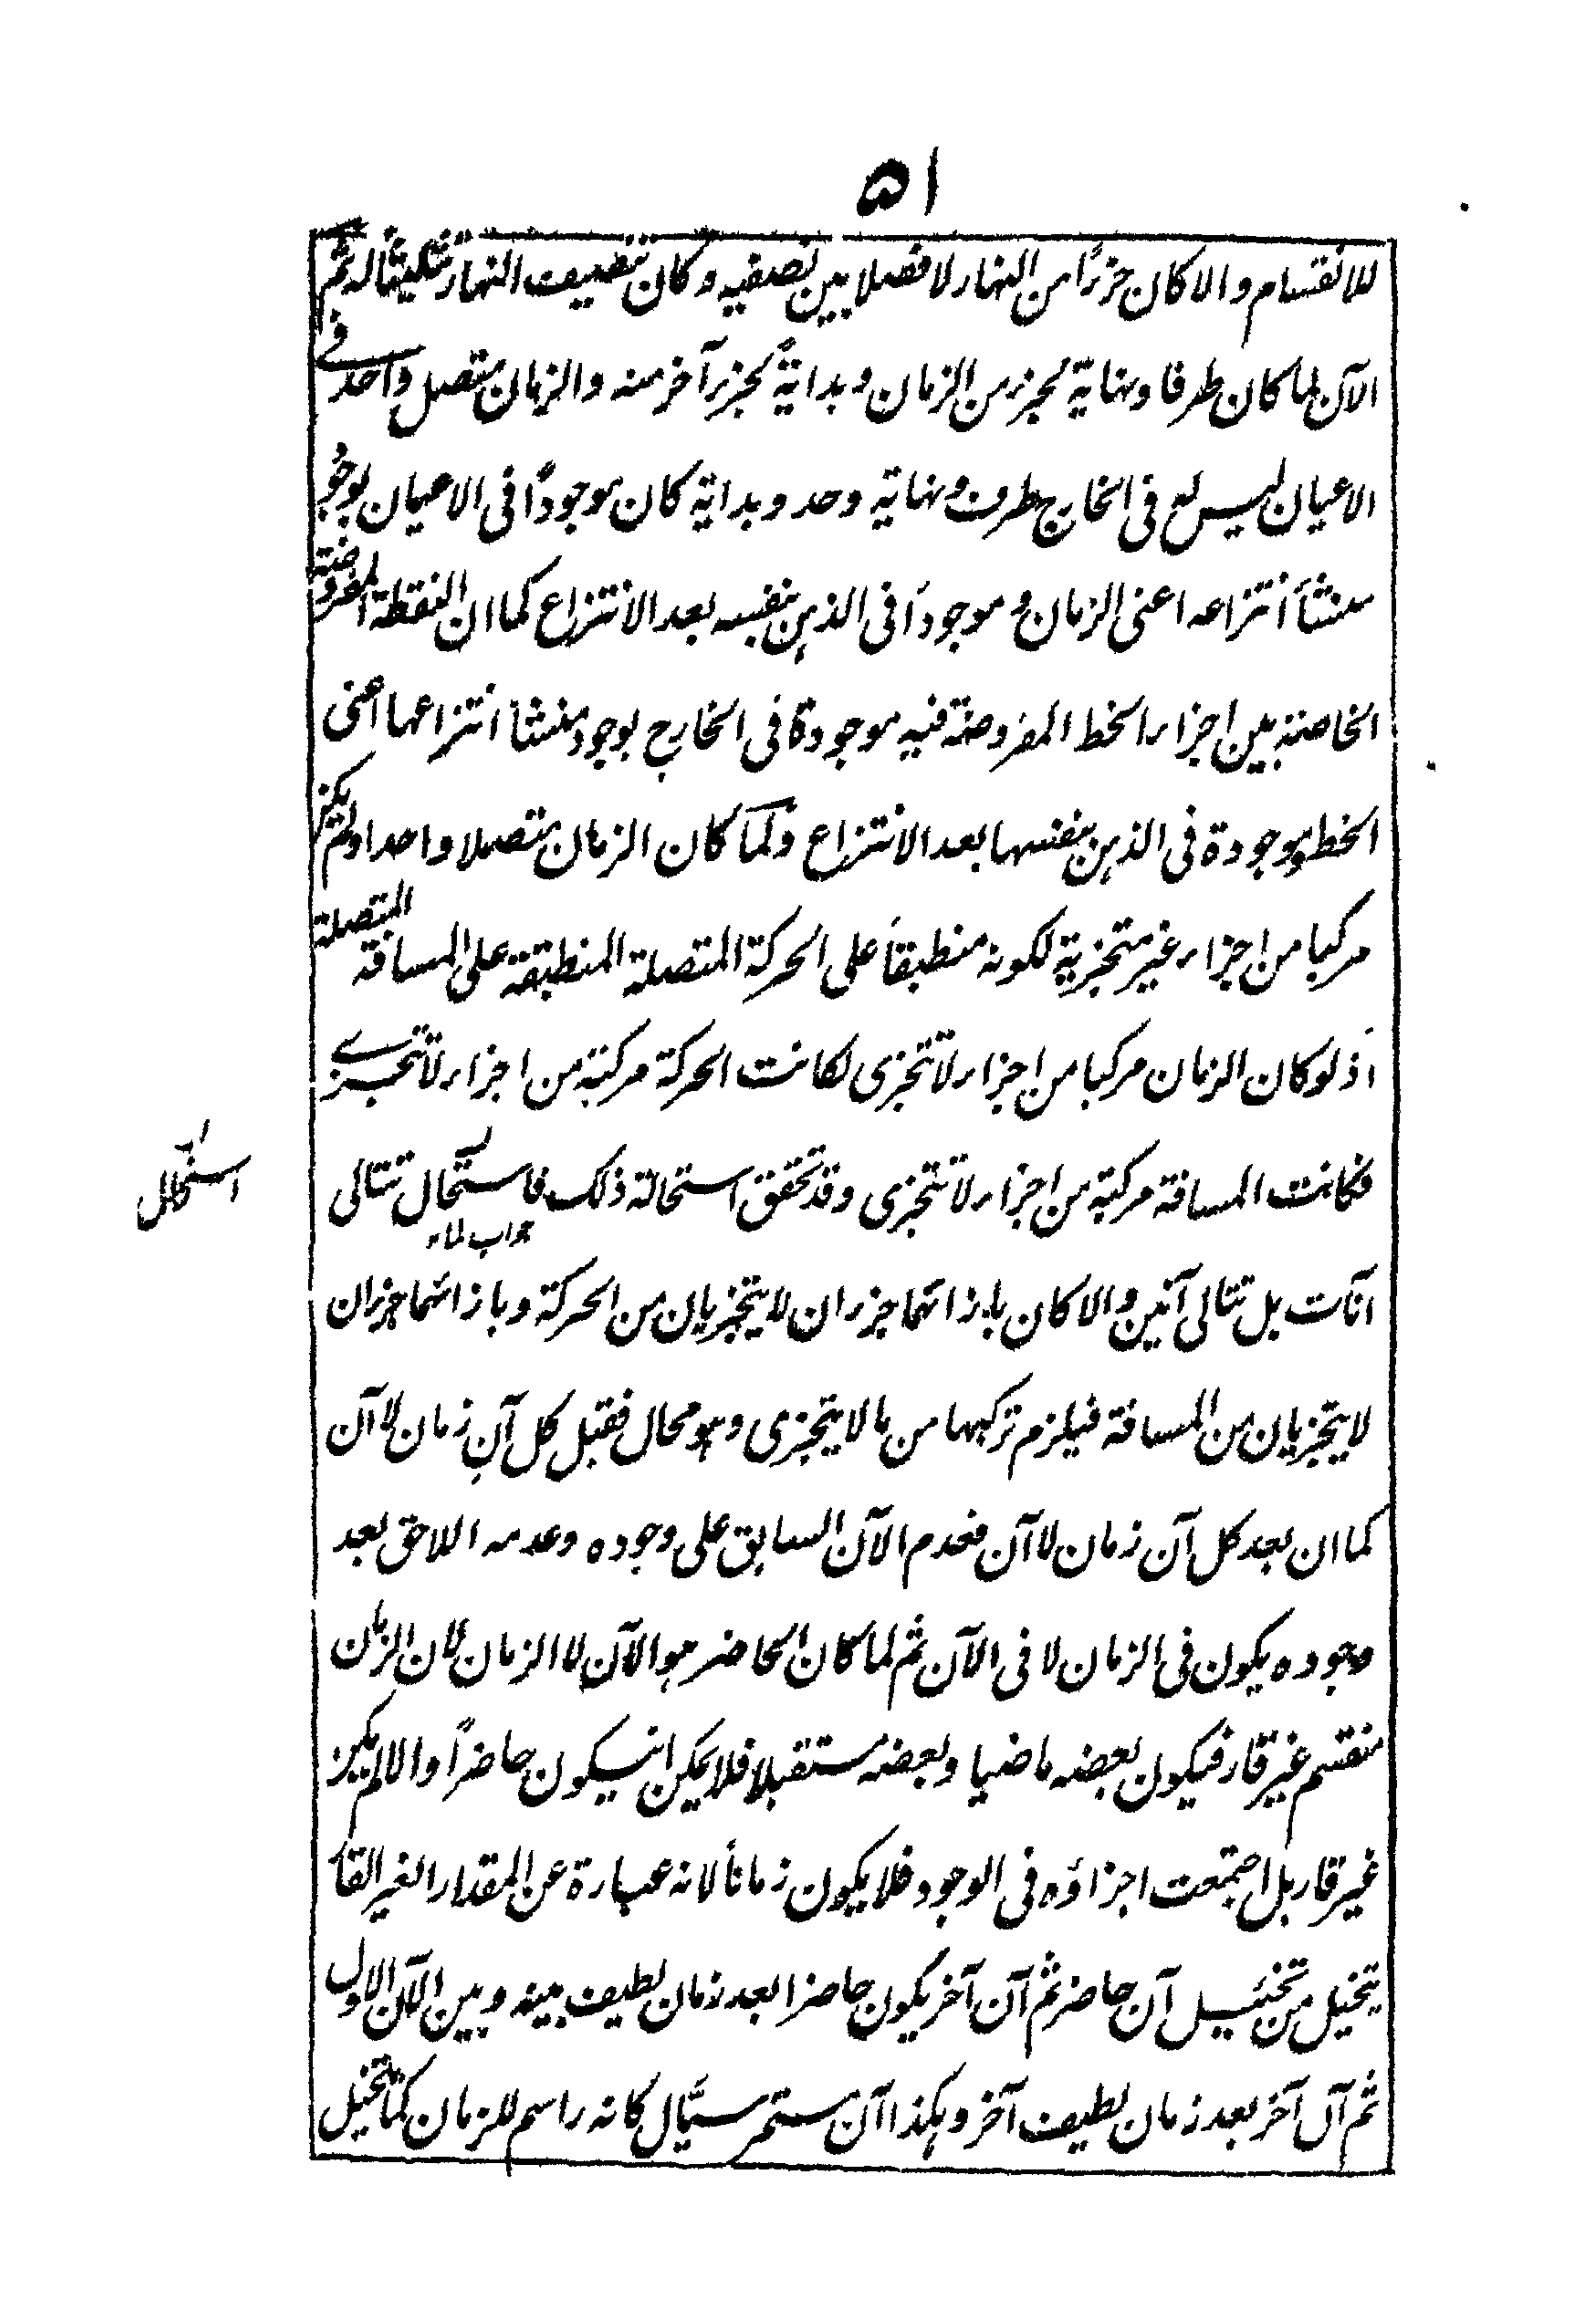 ٥١
للانقسام والا كان جزءًا من النهار لا فصلا بين نصفيه وكان تنصيف النهار تثليثا له ثم
الآن لما كان طرفا ونهاية لجزء من الزمان وبدايةً لجزء آخر منه والزمان متصل واحد في
الاعيان ليس له في الخارج طرف ونهاية وحد وبداية كان موجودًا في الاعيان بوجود
منشأ انتزاعه اعني الزمان وموجودًا في الذهن بنفسه بعد الانتزاع كما ان النقطة المفروضة
بين اجزاء الخط المفروضة فيه موجودة في الخارج بوجود منشأ انتزاعها اعني
الخط وموجودة في الذهن بنفسها بعد الانتزاع ولما كان الزمان متصلا واحدا ولم يكن
مركبا من اجزاء غير متجزية لكونه منطبقًا على الحركة المتصلة المنطبقة على المسافة المتصلة
اذ لو كان الزمان مركبا من اجزاء لا تتجزى لكانت الحركة مركبة من اجزاء لا تتجزى
فكانت المسافة مركبة من اجزاء لا تتجزى وقد تحقق استحالة ذلك فاستحال تتالى
جواب لما
آنات بل تتالى آنين والا كان بازائهما جزءان لا يتجزيان من الحركة وبازائهما جزءان
لا يتجزيان من المسافة فيلزم تركبها من ما لا يتجزى وهو محال فقبل كل آنٍ زمان لا آن
كما ان بعد كل آن زمان لا آن فعدم الآن السابق على وجوده وعدمه اللاحق بعد
وجوده يكون في الزمان لا في الآن ثم لما كان الحاضر هو الآن لا الزمان لان الزمان
منقسم غير قار فيكون بعضه ماضيا وبعضه مستقبلا فلا يمكن ان يكون حاضرًا والا لم يكن
غير قار بل اجتمعت اجزاؤه في الوجود فلا يكون زمانًا لانه عبارة عن المقدار الغير القار
يتخيل من تخييل آن حاضر ثم آن آخر يكون حاضرا بعد زمان لطيف بينه وبين الآن الاول
ثم آن آخر بعد زمان لطيف آخر وهكذا آن مستمر سيّال كانه راسم للزمان كما يتخيل